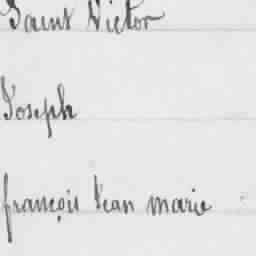 Saint Victor
Joseph
françois Jean marie